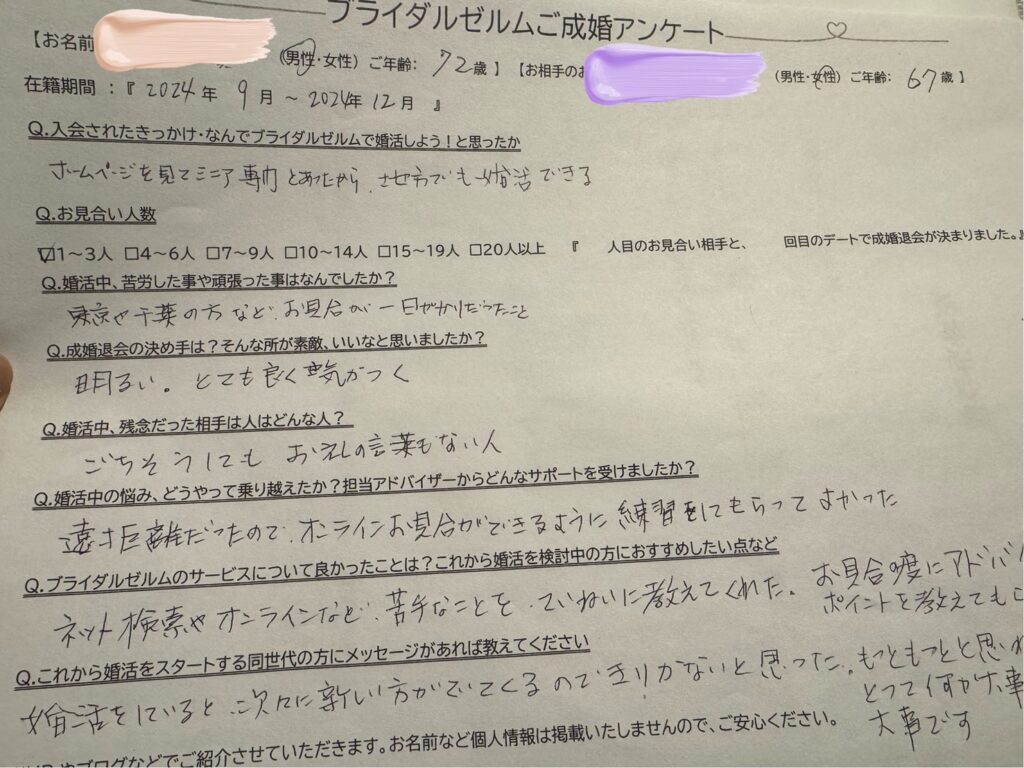 ブライダルゼルムご成婚アンケート
【お名前 (男性・女性) ご年齢: 72歳】【お相手のお (男性・女性) ご年齢: 67歳】
在籍期間:『 2024年 9月 ~ 2024年 12月 』
Q.入会されたきっかけ・なんでブライダルゼルムで婚活しよう!と思ったか
ホームページを見てシニア専門とあったから、地方でも婚活できる
Q.お見合い人数
☑1~3人 □4~6人 □7~9人 □10~14人 □15~19人 □20人以上 『 人目のお見合い相手と、 回目のデートで成婚退会が決まりました。』
Q.婚活中、苦労した事や頑張った事はなんでしたか?
東京や千葉の方など、お見合が一日がかりだったこと
Q.成婚退会の決め手は?そんな所が素敵、いいなと思いましたか?
明るい。とても良く気がつく
Q.婚活中、残念だった相手は人はどんな人?
ごちそうしてもお礼の言葉もない人
Q.婚活中の悩み、どうやって乗り越えたか?担当アドバイザーからどんなサポートを受けましたか?
遠距離だったので、オンラインお見合ができるように練習をしてもらってよかった
Q.ブライダルゼルムのサービスについて良かったことは?これから婚活を検討中の方におすすめしたい点など
ネット検索やオンラインなど、苦手なことを、ていねいに教えてくれた。お見合の度にアドバ
ポイントを教えてもら
Q.これから婚活をスタートする同世代の方にメッセージがあれば教えてください
婚活をしていると、次々に新しい方がでてくるのできりがないと思った。もっともっとと思わ
とって何が大事
大事です
やブログなどでご紹介させていただきます。お名前など個人情報は掲載いたしませんので、ご安心ください。